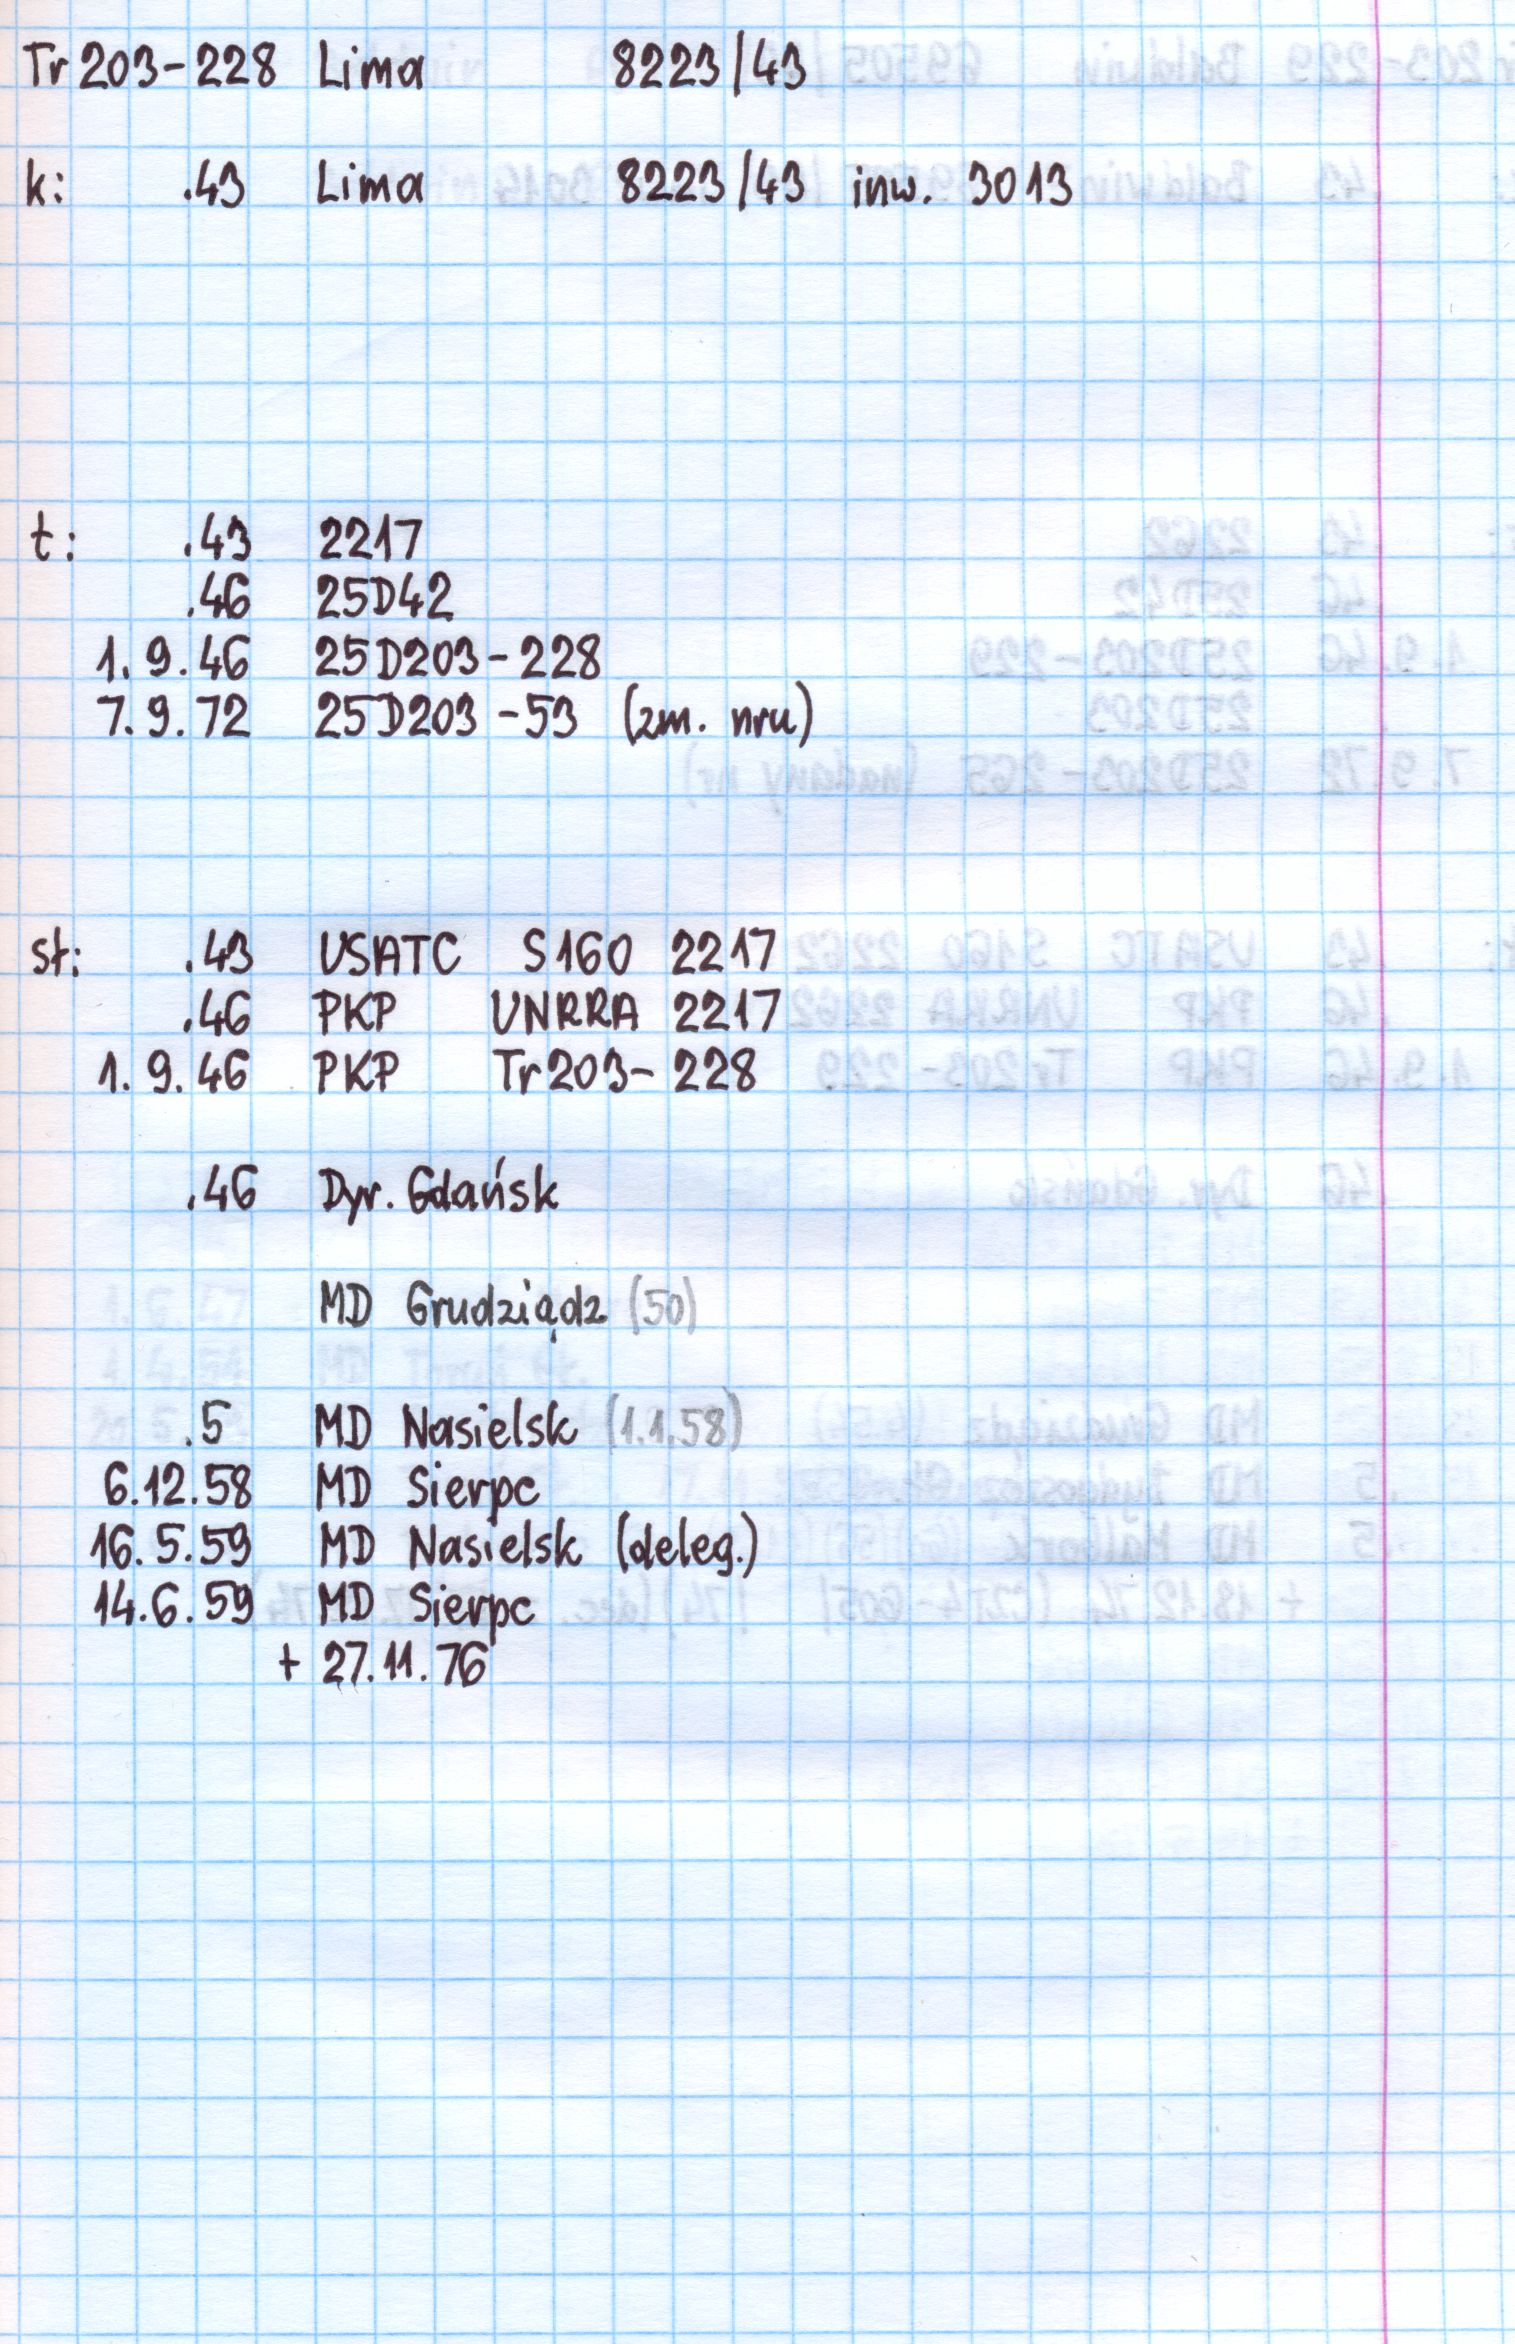 Tr 203-228 Lima 8223/43
k: .43 Lima 8223/43 inw. 3013
t: .43 2217
.46 25D42
1.9.46 25D203-228
7.9.72 25D203-53 (zm. nru)
st: .43 USATC S160 2217
.46 PKP UNRRA 2217
1.9.46 PKP Tr203-228
.46 Dyr. Gdańsk
MD Grudziądz (50)
.5 MD Nasielsk (1.1.58)
6.12.58 MD Sierpc
16.5.59 MD Nasielsk (deleg.)
14.6.59 MD Sierpc
+ 27.11.76